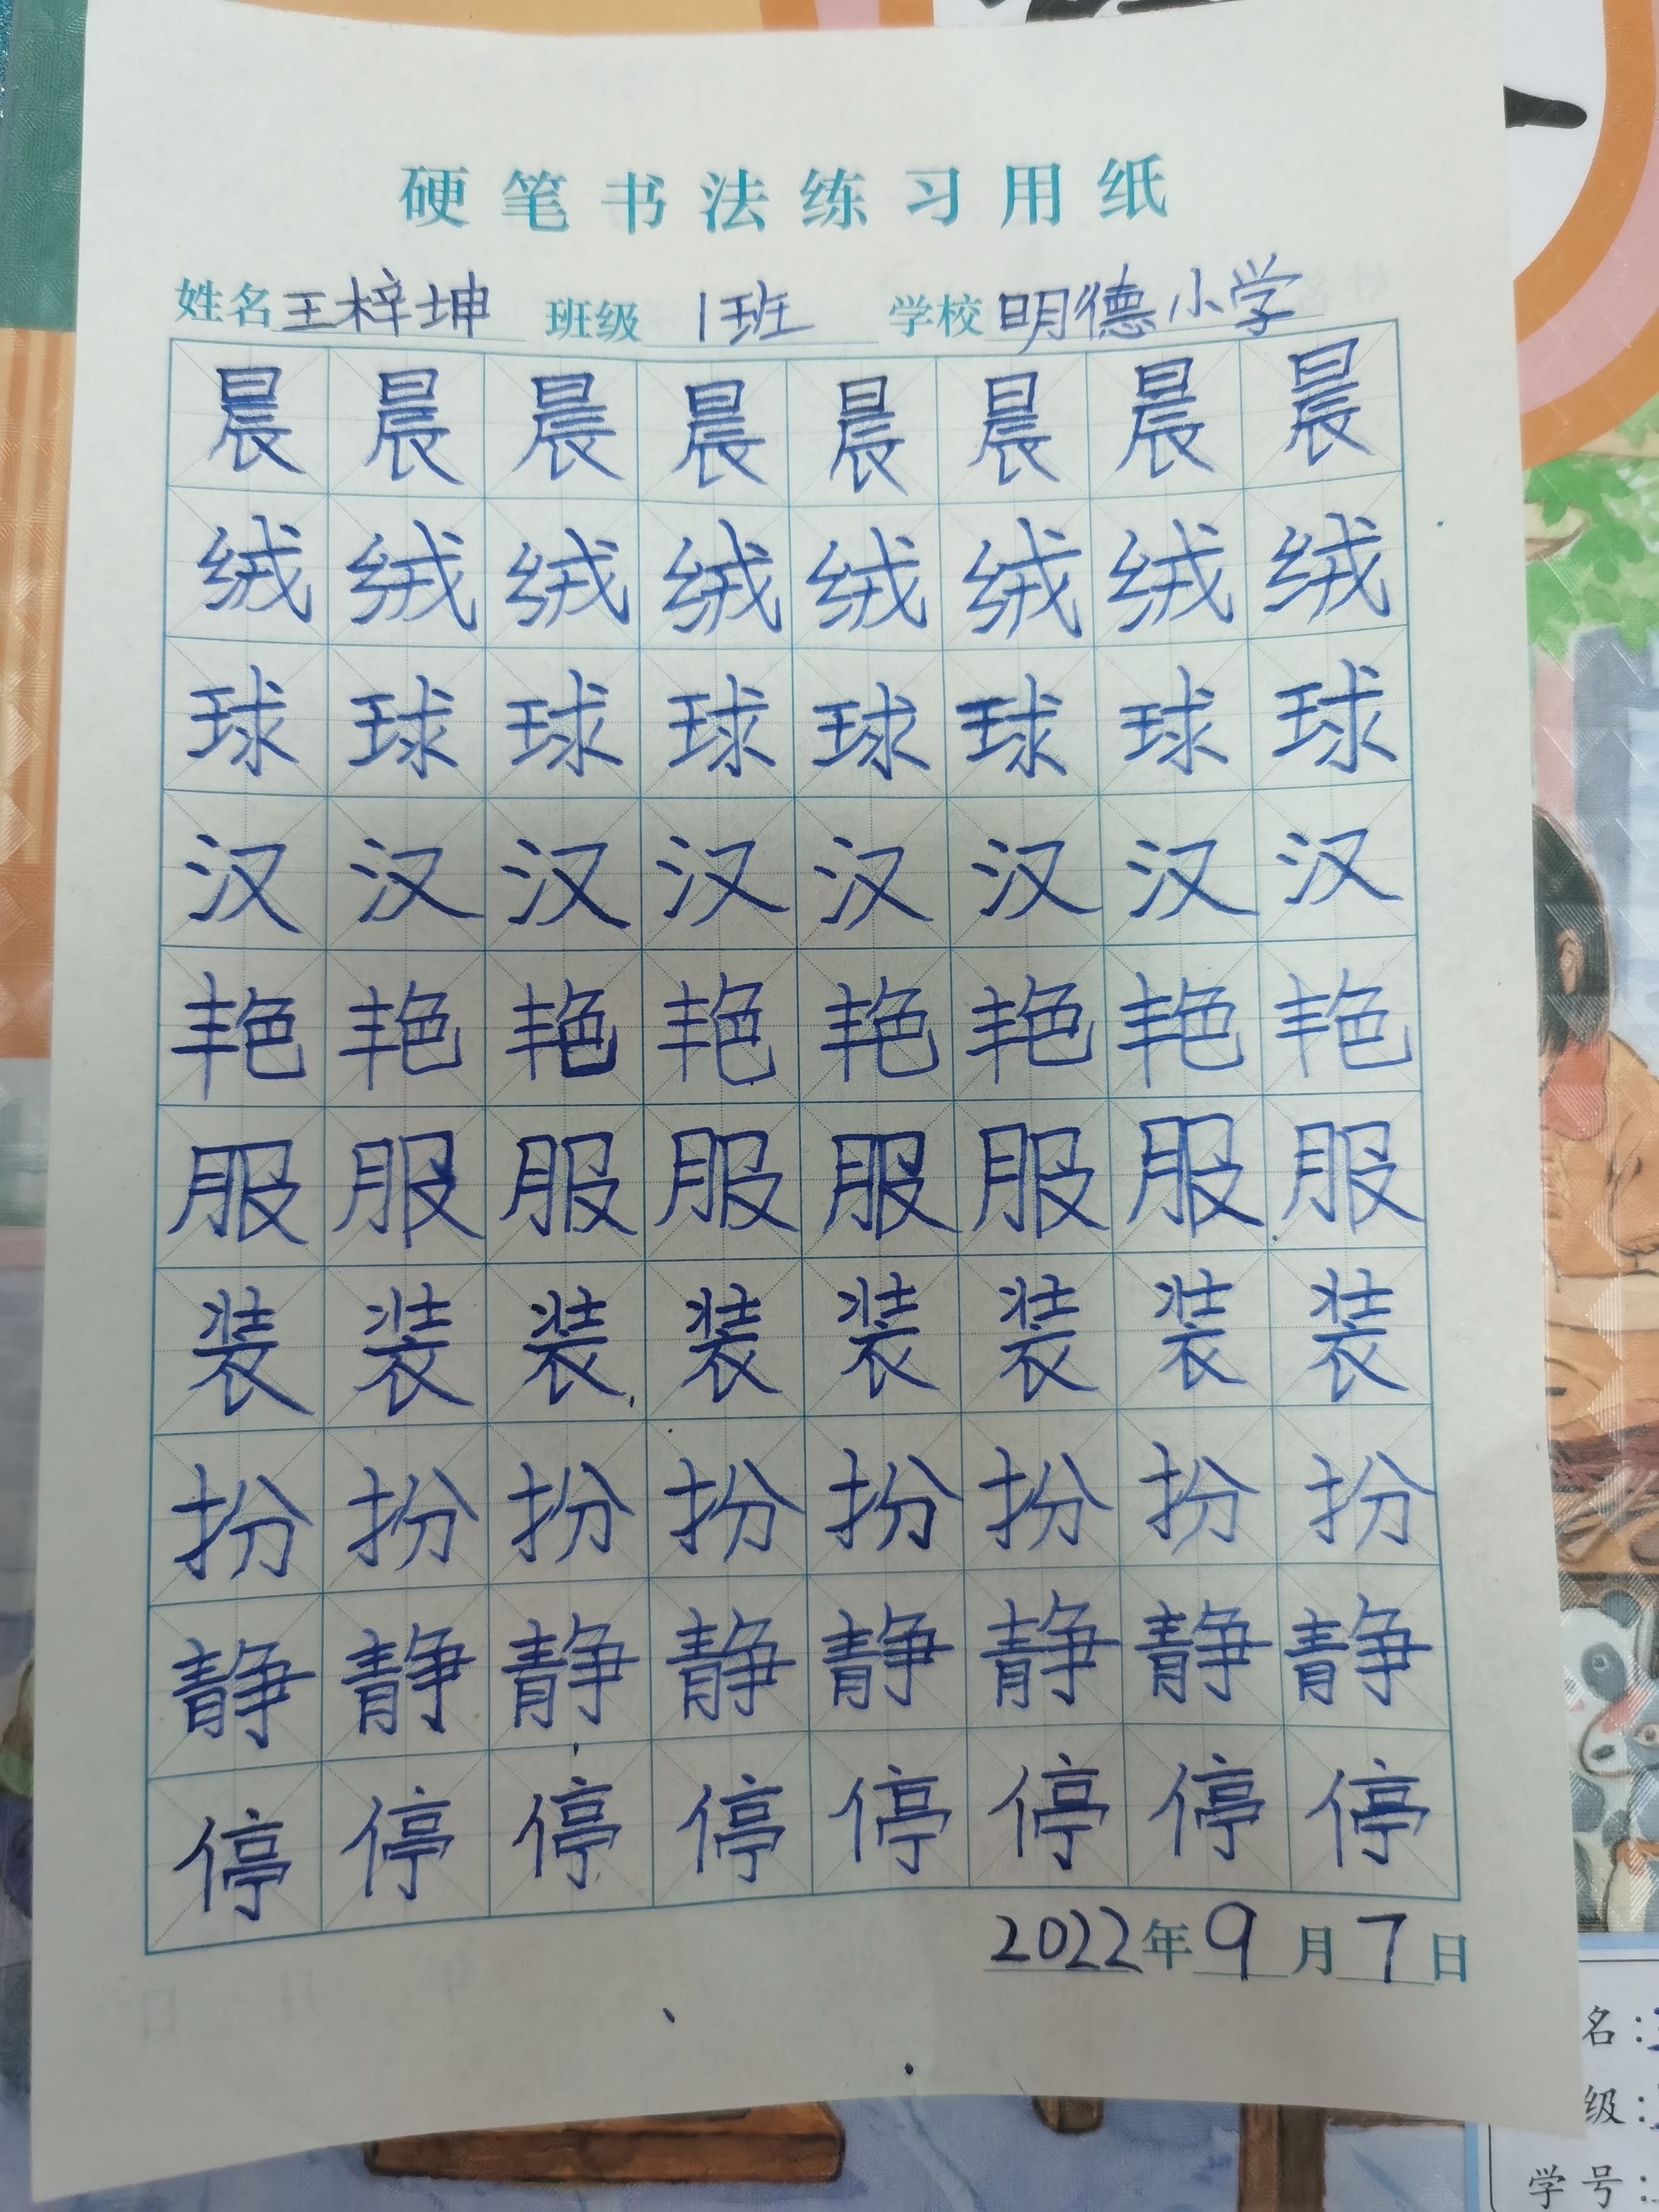 硬笔书法练习用纸
姓名王梓坤 班级 1班 学校明德小学
晨晨晨晨晨晨晨晨
绒绒绒绒绒绒绒绒
球球球球球球球球
汉汉汉汉汉汉汉汉
艳艳艳艳艳艳艳艳
服服服服服服服服
装装装装装装装装
扮扮扮扮扮扮扮扮
静静静静静静静静
停停停停停停停停
2022年9月7日
名:
级:
学号: